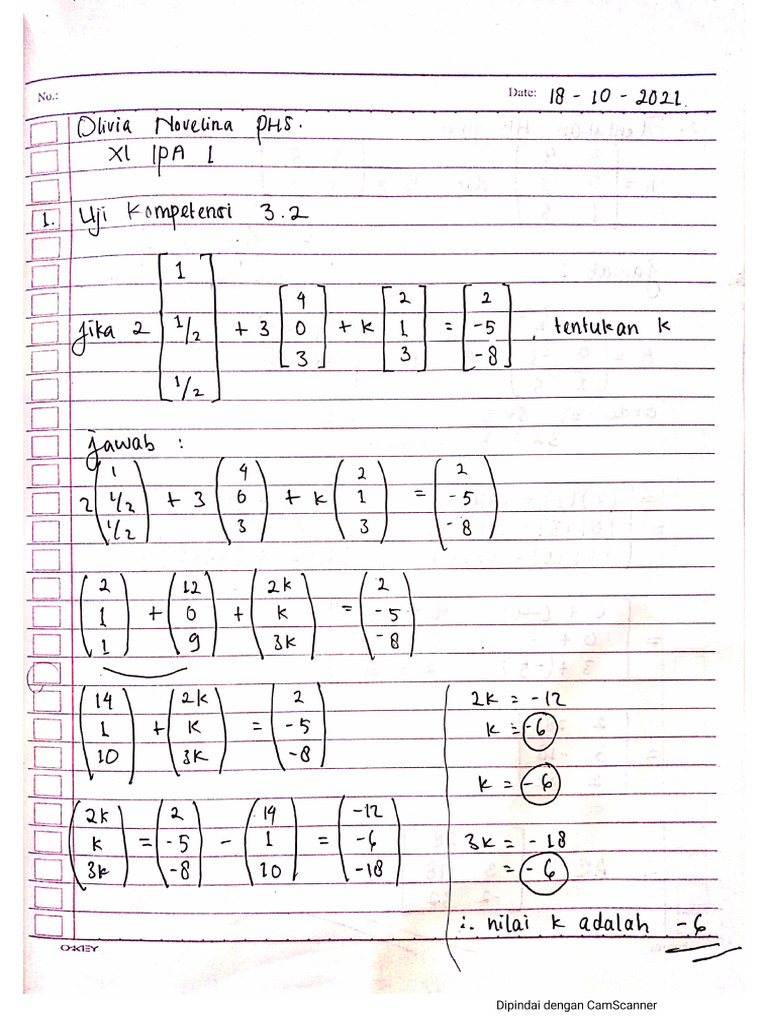 No.:
Date: 18 - 10 - 2021.
Olivia Novelina PHS.
XI IPA 1
1. Uji Kompetensi 3.2
Jika 2 [1 1/2 1/2] + 3 [4 0 3] + k [2 1 3] = [2 -5 -8], tentukan k
Jawab :
2 (1 1/2 1/2) + 3 (4 0 3) + k (2 1 3) = (2 -5 -8)
(2 1 1) + (12 0 9) + (2k k 3k) = (2 -5 -8)
(14 1 10) + (2k k 3k) = (2 -5 -8)
(2k k 3k) = (2 -5 -8) - (14 1 10) = (-12 -6 -18)
2k = -12
k = -6
k = -6
3k = -18
= -6
∴ nilai k adalah -6
OKEY
Dipindai dengan CamScanner